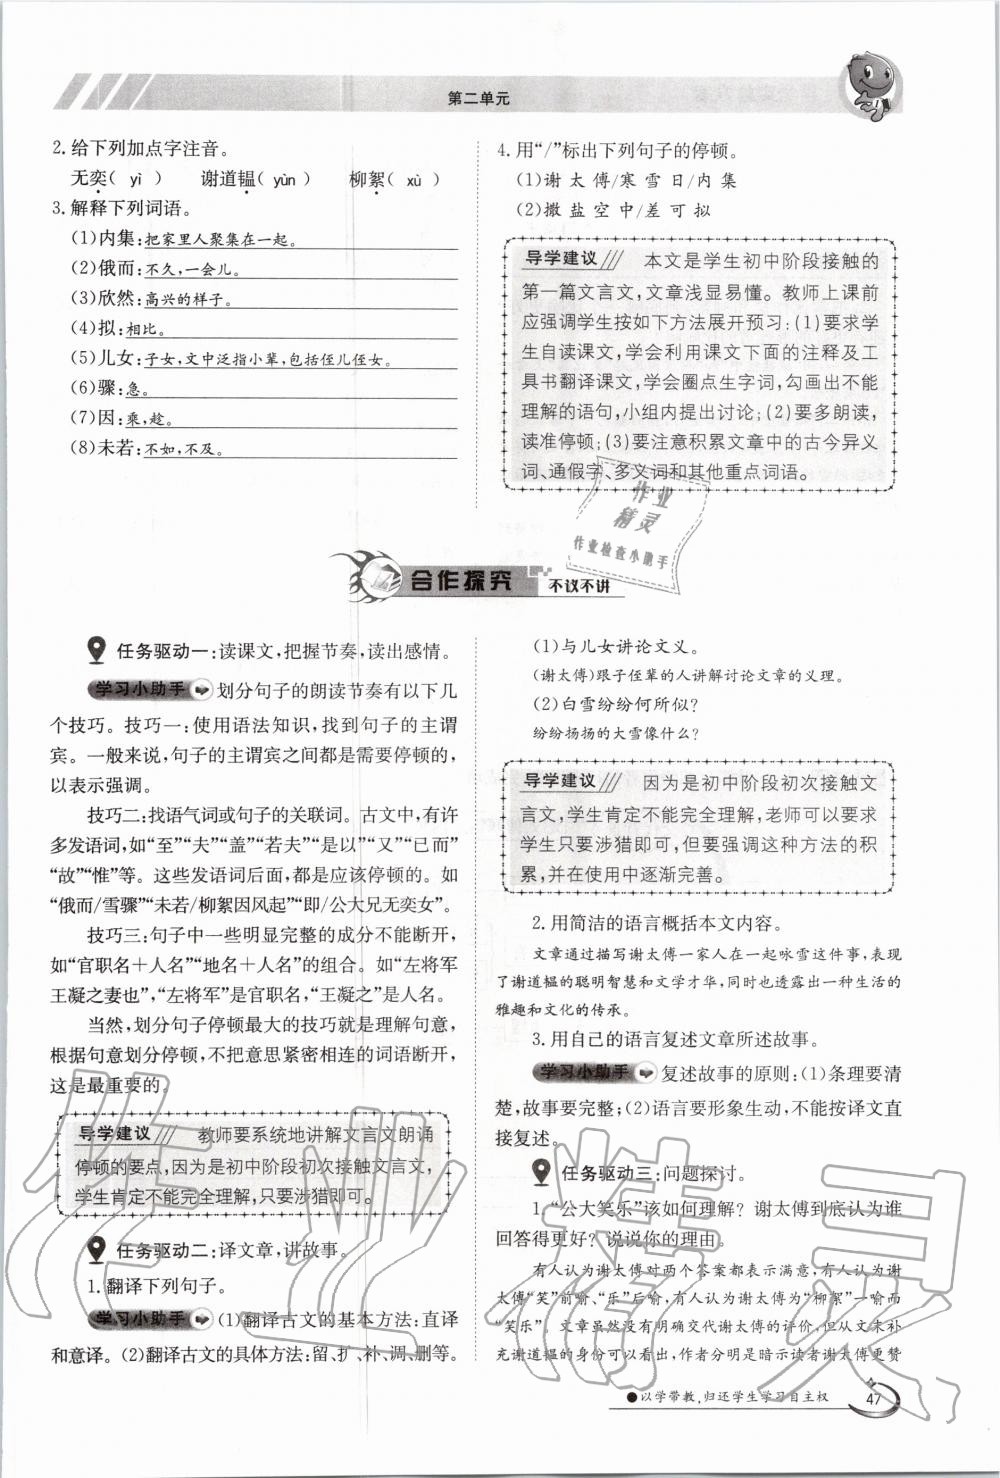 第二单元
2. 给下列加点字注音。
无奕( yì )　谢道韫( yùn )　柳絮( xù )
3. 解释下列词语。
(1)内集:把家里人聚集在一起。
(2)俄而:不久,一会儿。
(3)欣然:高兴的样子。
(4)拟:相比。
(5)儿女:子女,文中泛指小辈,包括侄儿侄女。
(6)骤:急。
(7)因:乘,趁。
(8)未若:不如,不及。
4. 用“/”标出下列句子的停顿。
(1)谢 太 傅/寒 雪 日/内 集
(2)撒 盐 空 中/差 可 拟
导学建议 本文是学生初中阶段接触的
第一篇文言文,文章浅显易懂。教师上课前
应强调学生按如下方法展开预习:(1)要求学
生自读课文,学会利用课文下面的注释及工
具书翻译课文,学会圈点生字词,勾画出不能
理解的语句,小组内提出讨论;(2)要多朗读,
读准停顿;(3)要注意积累文章中的古今异义
词、通假字、多义词和其他重点词语。
作业
精灵
作业检查小助手
合作探究 不议不讲
任务驱动一:读课文,把握节奏,读出感情。
学习小助手 划分句子的朗读节奏有以下几
个技巧。技巧一:使用语法知识,找到句子的主谓
宾。一般来说,句子的主谓宾之间都是需要停顿的,
以表示强调。
技巧二:找语气词或句子的关联词。古文中,有许
多发语词,如“至”“夫”“盖”“若夫”“是以”“又”“已而”
“故”“惟”等。这些发语词后面,都是应该停顿的。如
“俄而/雪骤”“未若/柳絮因风起”“即/公大兄无奕女”。
技巧三:句子中一些明显完整的成分不能断开,
如“官职名＋人名”“地名＋人名”的组合。如“左将军
王凝之妻也”,“左将军”是官职名,“王凝之”是人名。
当然,划分句子停顿最大的技巧就是理解句意,
根据句意划分停顿,不把意思紧密相连的词语断开,
这是最重要的。
导学建议 教师要系统地讲解文言文朗诵
停顿的要点,因为是初中阶段初次接触文言文,
学生肯定不能完全理解,只要涉猎即可。
任务驱动二:译文章,讲故事。
1.翻译下列句子。
学习小助手 (1)翻译古文的基本方法:直译
和意译。(2)翻译古文的具体方法:留、扩、补、调、删等。
(1)与儿女讲论文义。
(谢太傅)跟子侄辈的人讲解讨论文章的义理。
(2)白雪纷纷何所似?
纷纷扬扬的大雪像什么?
导学建议 因为是初中阶段初次接触文
言文,学生肯定不能完全理解,老师可以要求
学生只要涉猎即可,但要强调这种方法的积
累,并在使用中逐渐完善。
2. 用简洁的语言概括本文内容。
文章通过描写谢太傅一家人在一起咏雪这件事,表现
了谢道韫的聪明智慧和文学才华,同时也透露出一种生活的
雅趣和文化的传承。
3. 用自己的语言复述文章所述故事。
学习小助手 复述故事的原则:(1)条理要清
楚,故事要完整;(2)语言要形象生动,不能按译文直
接复述。
任务驱动三:问题探讨。
1.“公大笑乐”该如何理解?谢太傅到底认为谁
回答得更好?说说你的理由。
有人认为谢太傅对两个答案都表示满意,有人认为谢
太傅“笑”前喻、“乐”后喻,有人认为谢太傅为“柳絮”一喻而
“笑乐”。文章虽然没有明确交代谢太傅的评价,但从文末补
充谢道韫的身份可以看出,作者分明是暗示读者谢太傅更赞
●以学带教,归还学生学习自主权 47
作业精灵